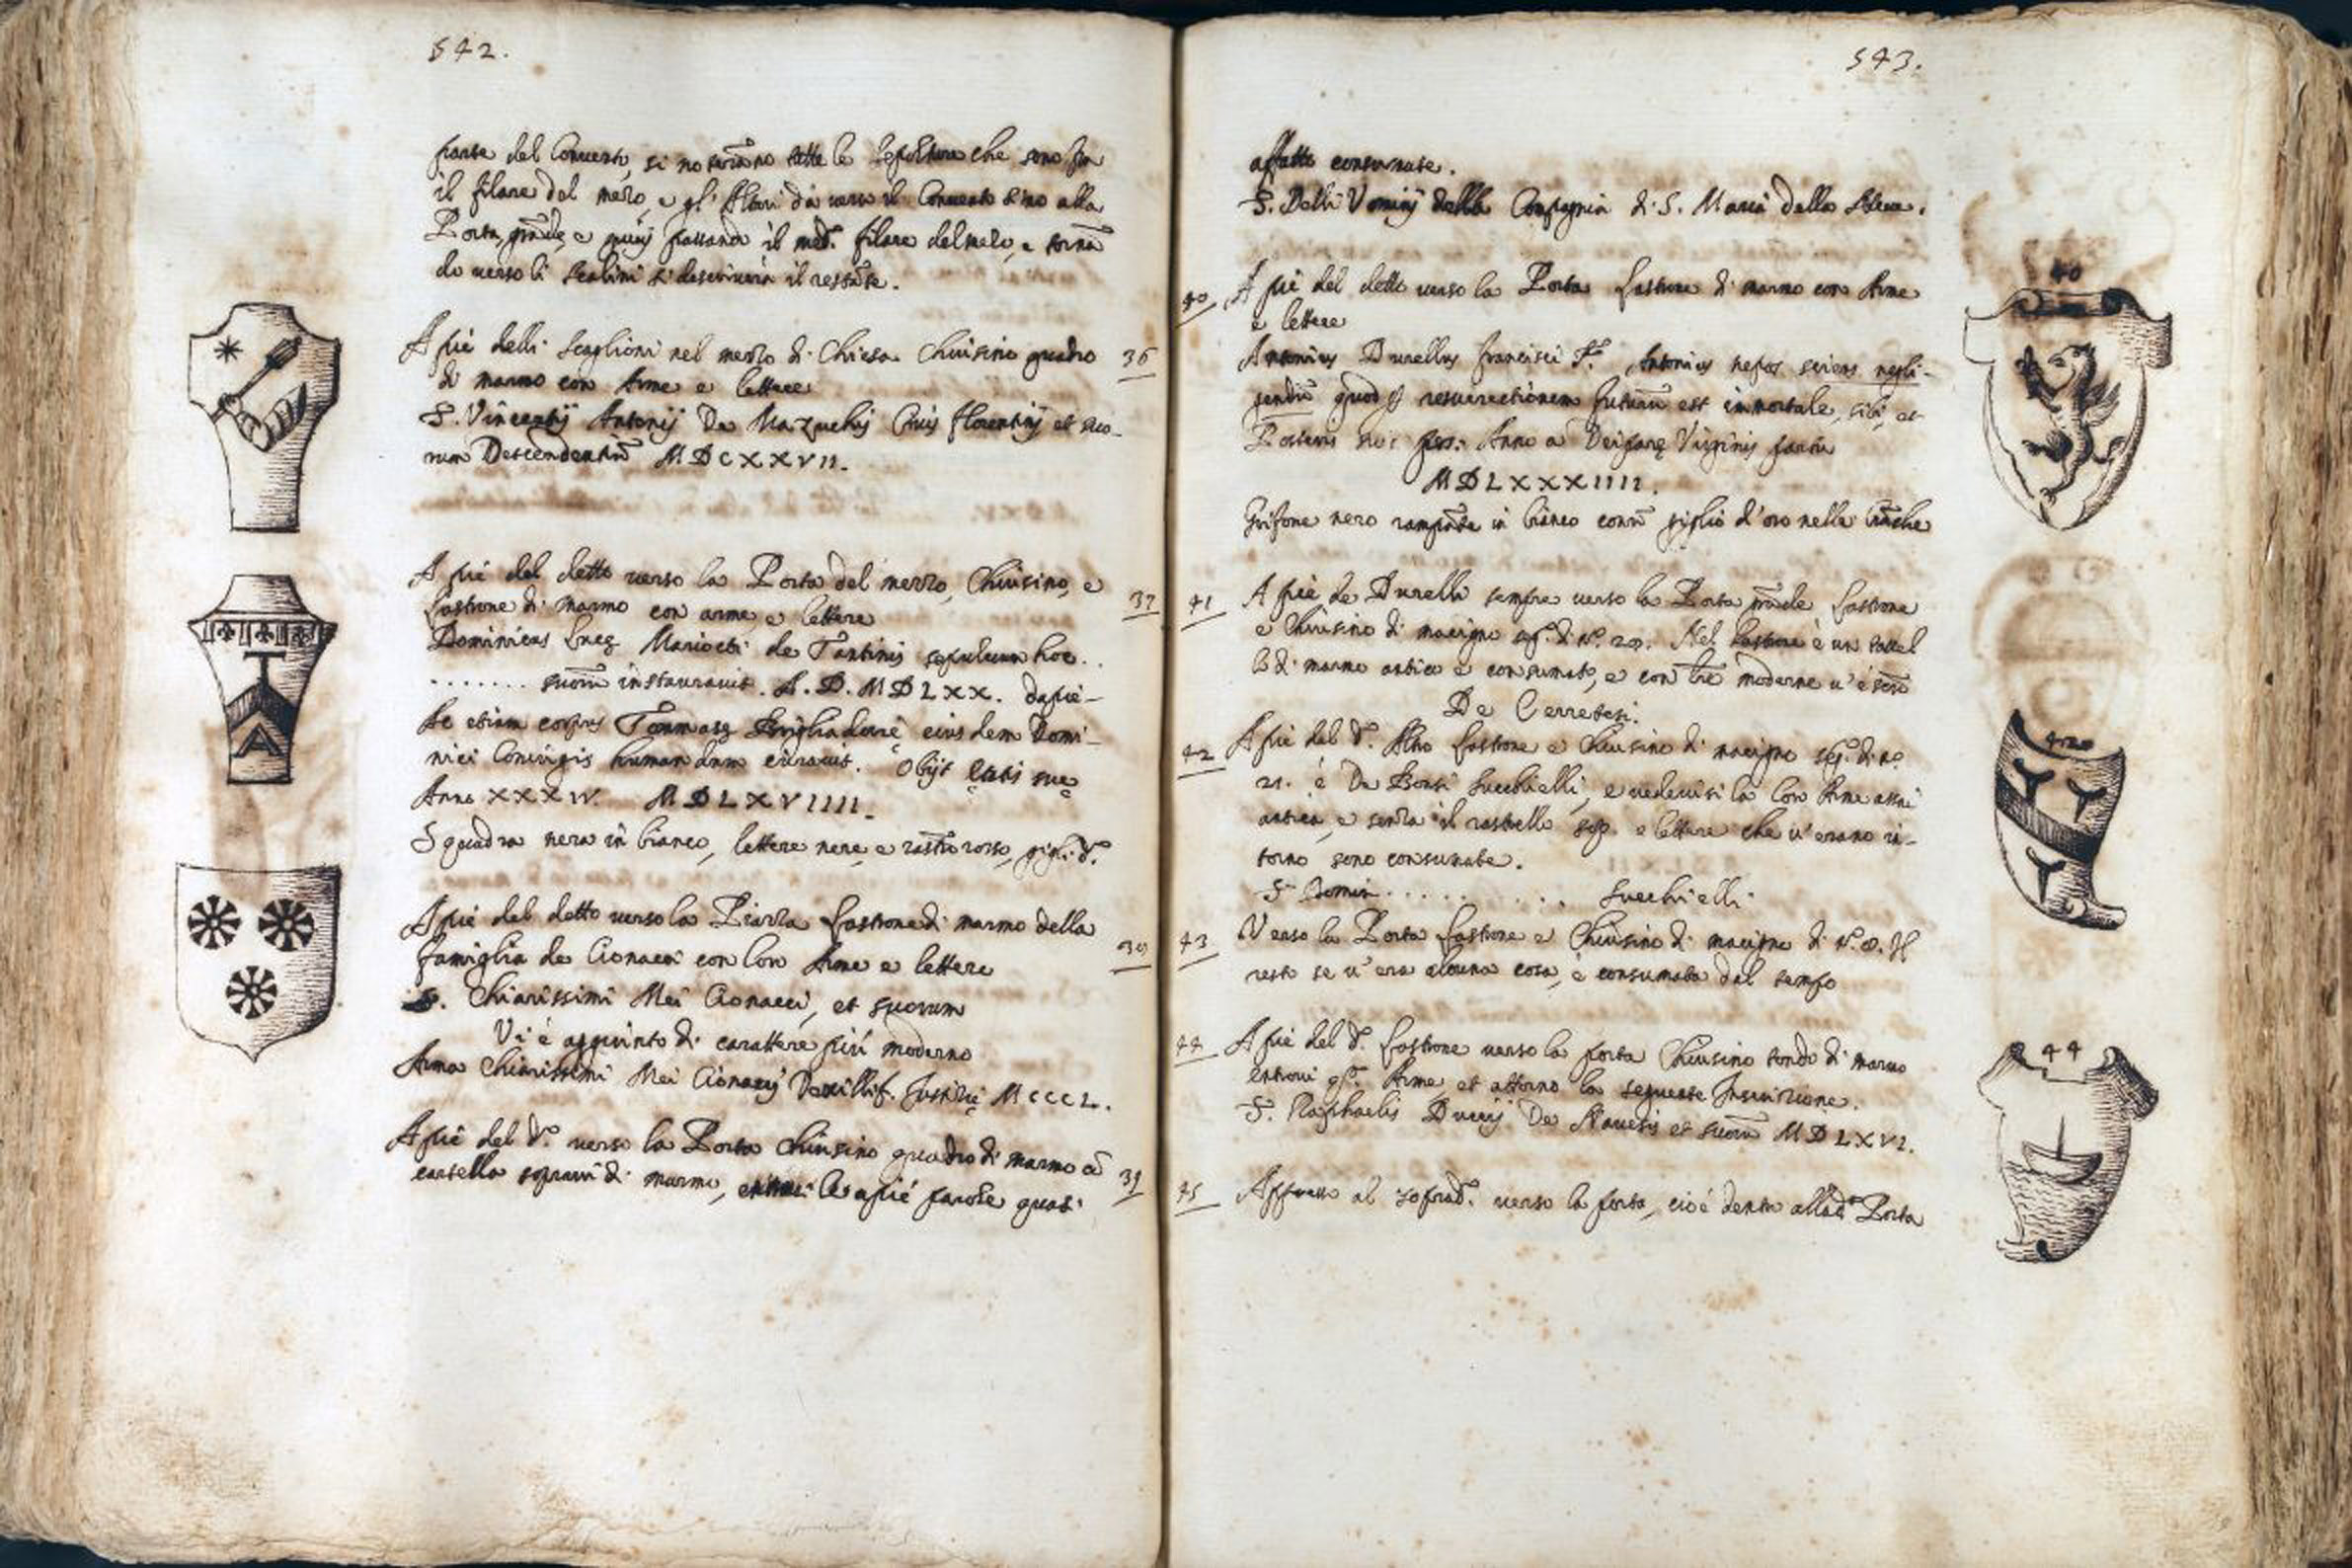 542.
parte del Convento, si noteranno tutte le Sepolture che sono fra
il filare del mezo, e gl'Altari da verso il Convento sino alla
Porta grāde, e quivi passando il med.º filare del mezo, e tornā
do verso li Scalini si descriverà il restāte.
A piè delli Scaglioni nel mezzo di Chiesa Chiusino quadro 36
di marmo con Arme e lettere
S. Vincentij Antonij De Mazuchis Civis florentinj et suo-
rum Descendentiū MDCXXVII.
A piè del detto verso la Porta del mezzo, Chiusino, e 37
Lastrone di marmo con arme e lettere
Dominicus Lucę Mariotti de Tantinis sepulcrum hoc..
....... suorū instauravit. A. D. MDLXX. dapie-
de etiam corpus Tommasę eiusdem Domi-
nici Coniugis humandum curavit. Obijt Ętatis suę
Anno XXXIV. MDLXVIIII.
Squadra nera in bianco, lettere nere, e rastro rosso, gigli d'º
A piè del detto verso la Piazza Lastrone di marmo della 38
famiglia de Cionacci con loro Arme e lettere
S. Chiarissimi Mei Cionacci, et suorum
Vi è aggiunto di carattere più moderno
Arma Chiarissimi Mei Cionaccij Vexillif. Justitię MCCCL.
A piè del d.º verso la Porta Chiusino quadro di marmo cō
cartella sopravi di marmo, entrovi le a piè parole quasi 39
543.
affatto consumate.
S. Delli Vominj della Compagnia di S. Maria della Neve.
40 A piè del detto verso la Porta Lastrone di marmo con Arme
e lettere
Antonius Durellus francisci F. Antonius nepos sciens negli-
gendū quod resurrectionem futurū est immortale, sibi, et
Posteris suis pos: Anno a Deiparę Virginis partu
MDLXXXIIII.
Grifone nero rampāte in bianco con giglio d'oro nelle brāche
41 A piè de Durelli sempre verso la Porta grāde Lastrone
e Chiusino di macigno seg. di Nº. 20. Nel Lastrone è un tassel
lo di marmo antico e consumato, e con lrē moderne v'è scrº
De Cerretesi.
42 A piè del d.º Altro Lastrone e Chiusino di macigno seg. di nº
21. è De Bonsi Succhielli, e vedevisi la loro Arme assai
antica, e senza il rastrello sop. e lettere che v'erano in-
torno sono consumate.
S Domin. . . . . . . . . . . Succhielli
43 Verso la Porta Lastrone e Chiusino di macigno di Nº. 8. Il
resto se v'era alcuna cosa, è consumata dal tempo
44 A piè del d.º Lastrone verso la porta Chiusino tondo di marmo
entrovi q.ª Arme et attorno la seguente Inscrizione.
S. Raphaelis Duccij De Navesis et suorū MDLXVI.
45 Appresso al soprad.º verso la porta, cioè dentro alla d.ª Porta
40
42
44